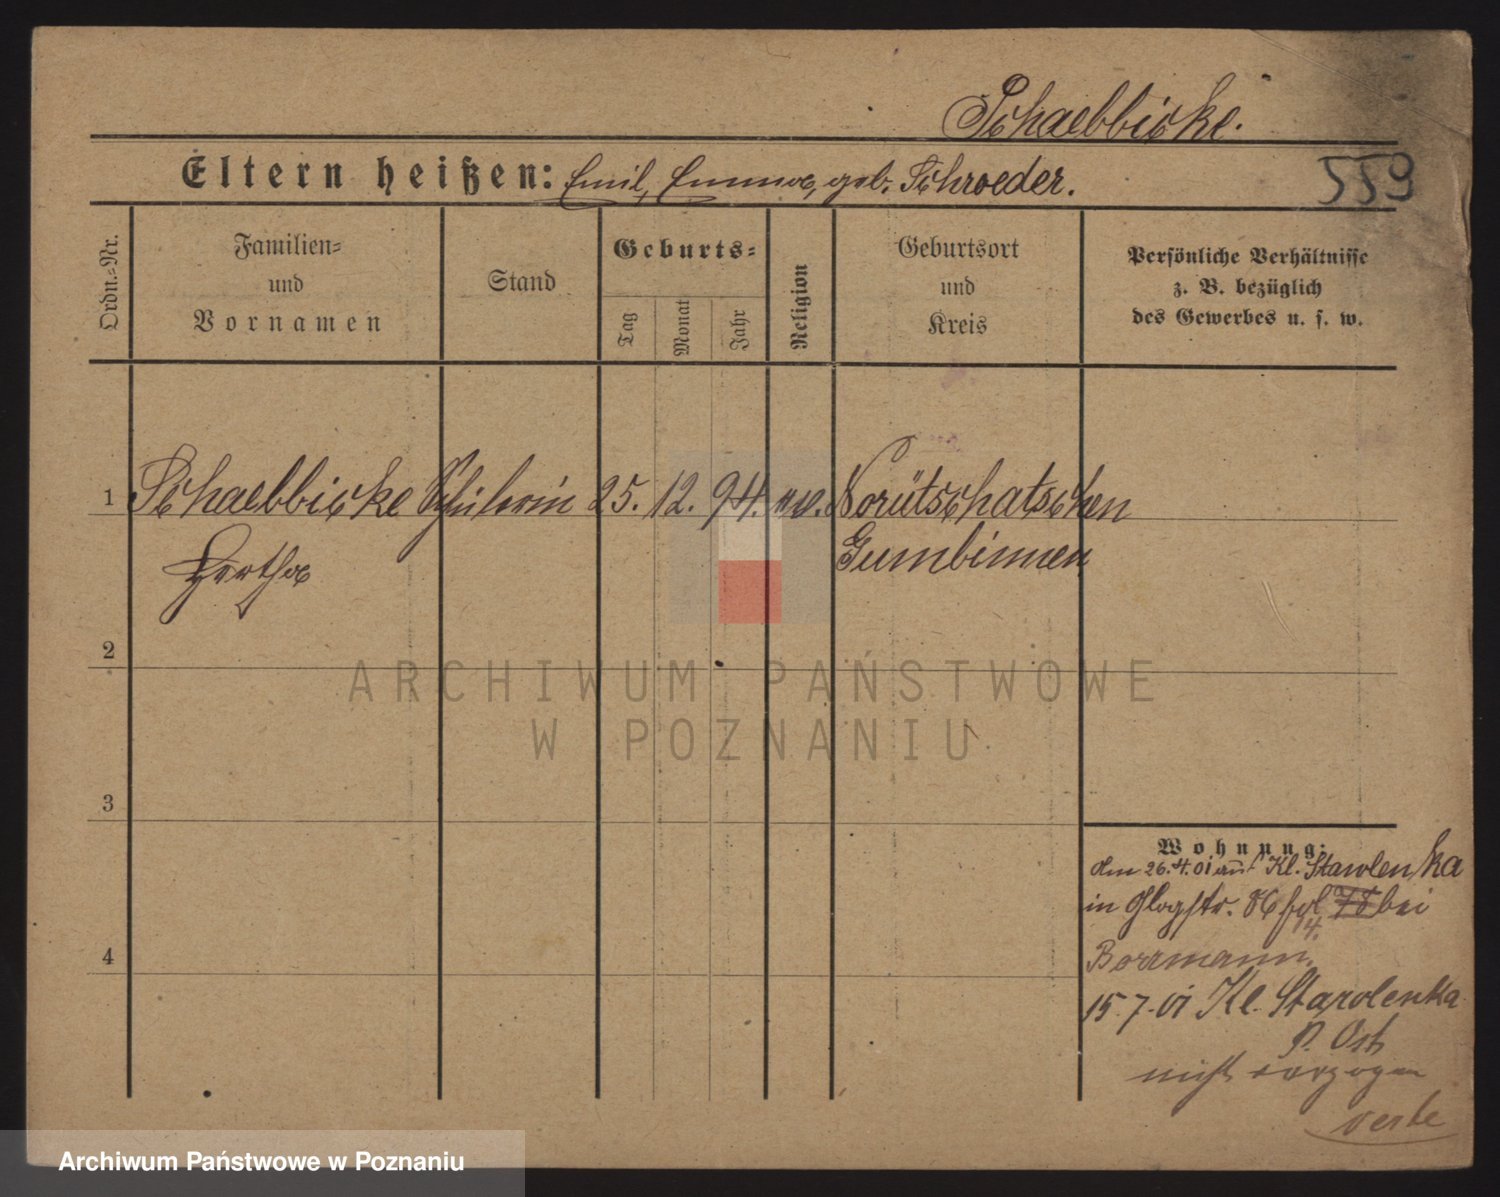 Schaebbicke.
Eltern heißen: Emil, Emma, geb. Schroeder.
559
Ordn.=Nr.
Familien=
und
Vornamen
Stand
Geburts=
Tag
Monat
Jahr
Religion
Geburtsort
und
Kreis
Persönliche Verhältnisse
z. B. bezüglich
des Gewerbes u. s. w.
1 Schaebbicke Schülerin 25. 12. 94. ev. Norütschatschen
Hertha Gumbinnen
2
ARCHIWUM PAŃSTWOWE
W POZNANIU
3
Wohnung:
26.4.01 auf Kl. Starolenka
in Glogstr. 86 bei
14.
Borrmann.
15.7.01 Kl. Starolenka
P. Ost
4
nicht verzogen
Archiwum Państwowe w Poznaniu